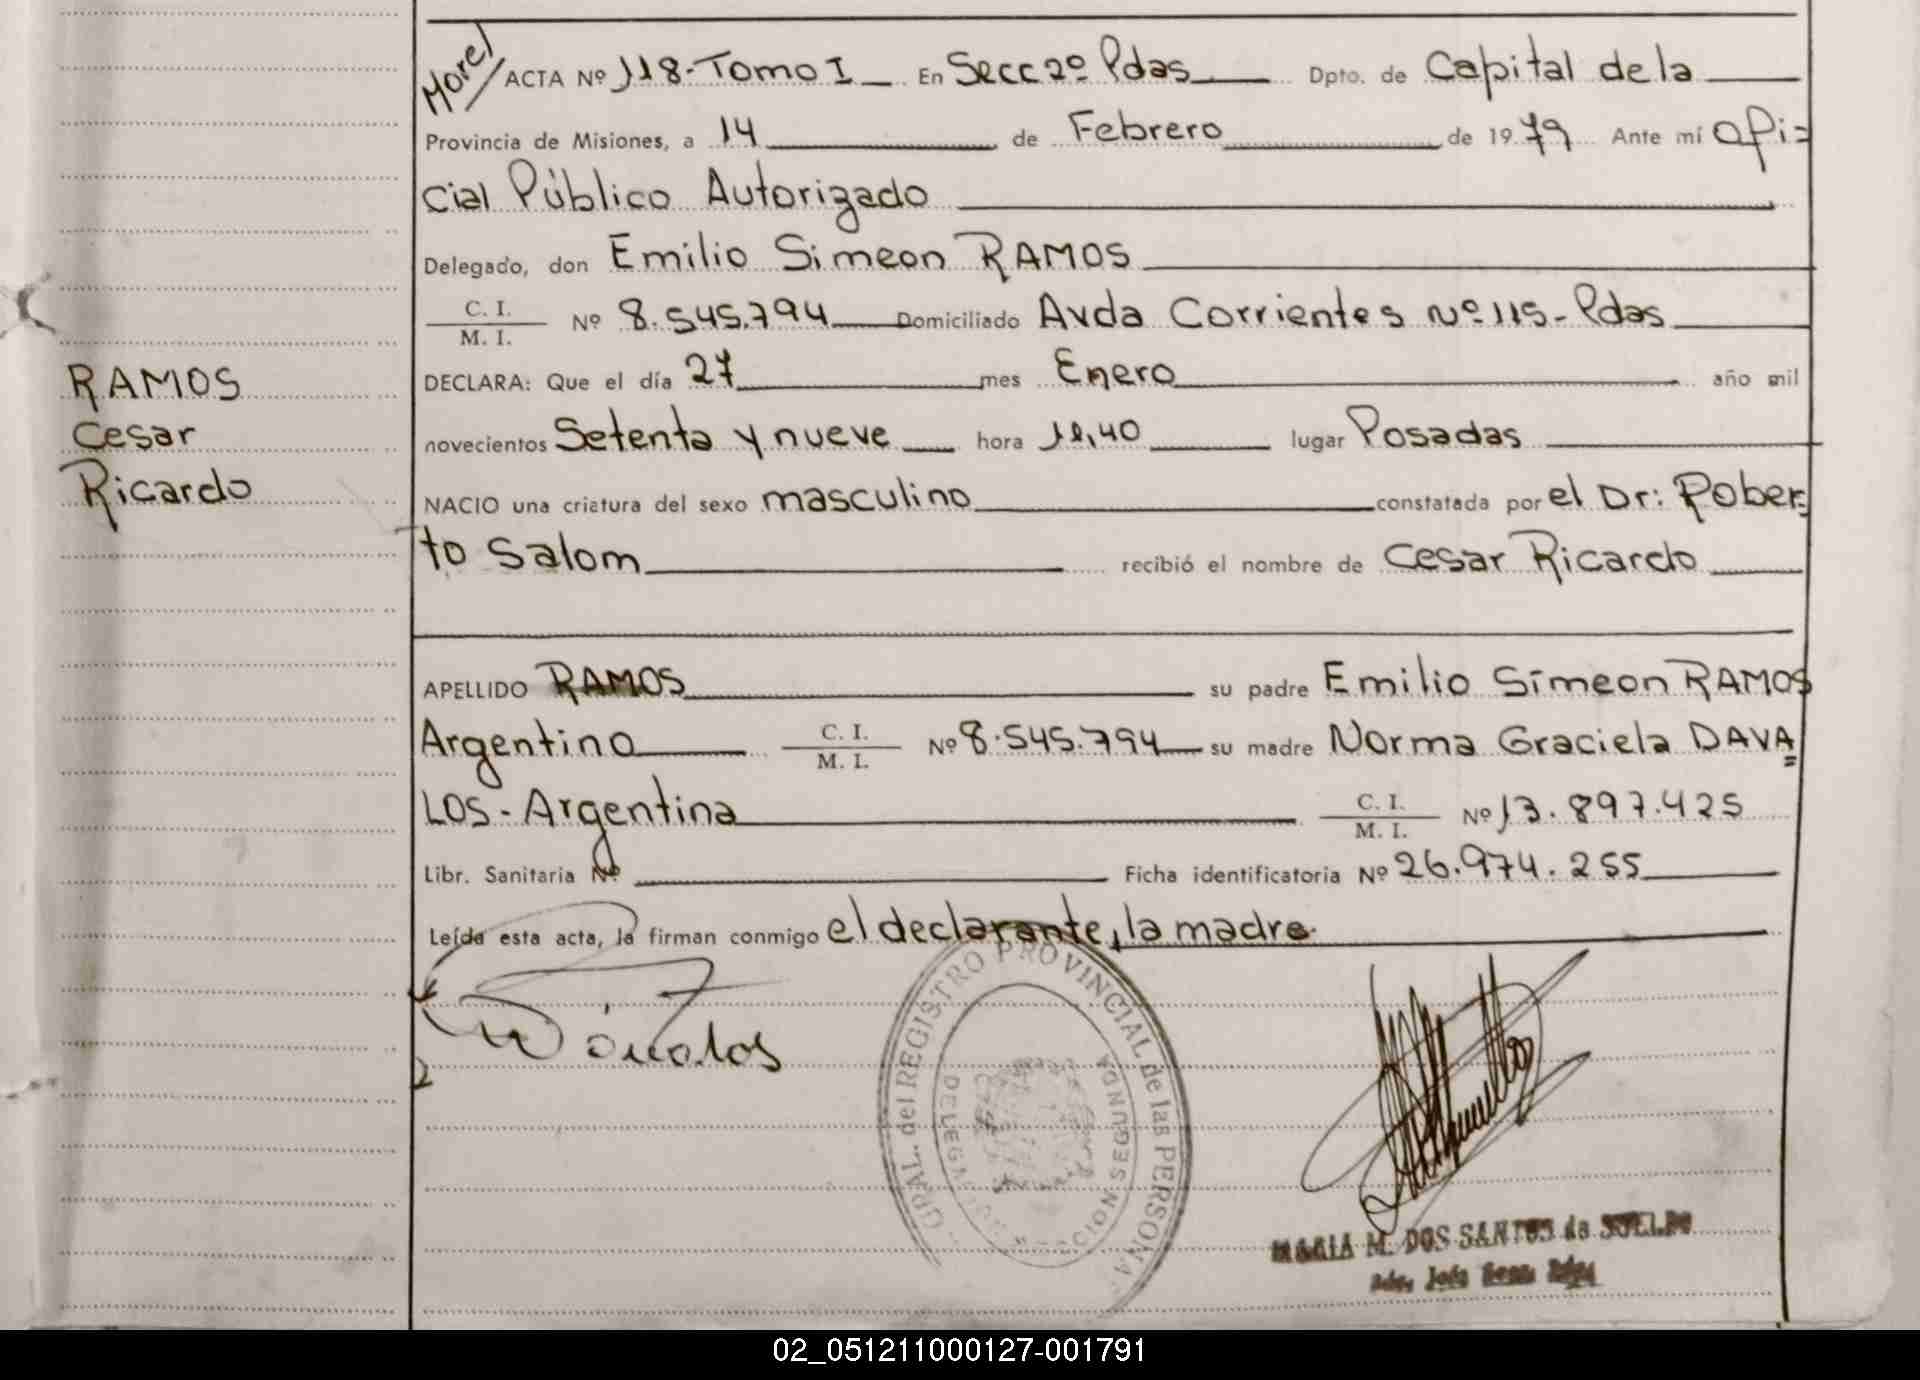 Morel
ACTA Nº 118-Tomo I En Secc 2º Pdas Dpto. de Capital de la
Provincia de Misiones, a 14 de Febrero de 1979 Ante mí ofi=
cial Público Autorizado
Delegado, don Emilio Simeon RAMOS
C. I.
M. I. Nº 8.545.794 Domiciliado Avda Corrientes Nº 115-Pdas
DECLARA: Que el día 27 mes Enero año mil
novecientos Setenta y nueve hora 11,40 lugar Posadas
NACIO una criatura del sexo masculino constatada por el Dr: Rober=
to Salom recibió el nombre de Cesar Ricardo
RAMOS
Cesar
Ricardo
APELLIDO RAMOS su padre Emilio Simeon RAMOS
Argentino C. I.
M. I. Nº 8.545.794 su madre Norma Graciela DAVA=
LOS-Argentina C. I.
M. I. Nº 13.897.425
Libr. Sanitaria Nº Ficha identificatoria Nº 26.974.255
Leída esta acta, la firman conmigo el declarante, la madre.
GRAL. del REGISTRO PROVINCIAL de las PERSONA
SECCION SEGUNDA
MARIA M. DOS SANTOS de SUELDO
02_051211000127-001791